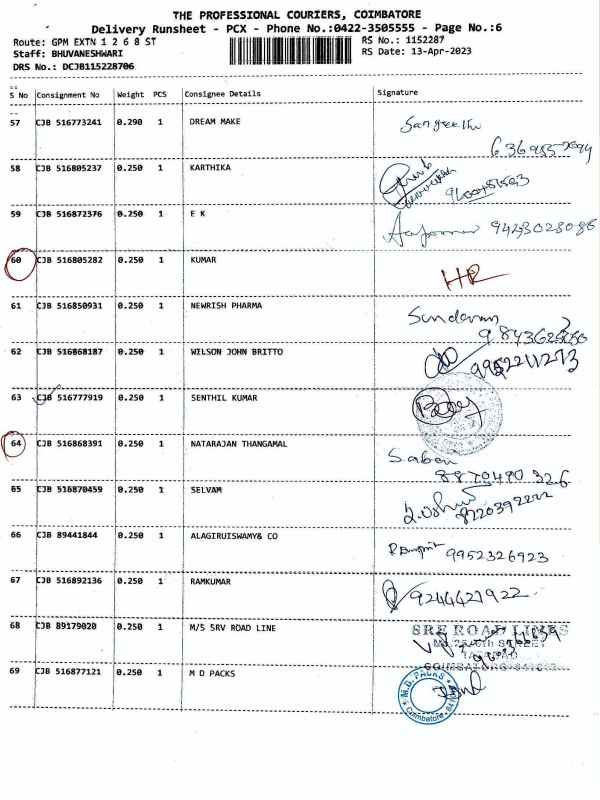 THE PROFESSIONAL COURIERS, COIMBATORE
Delivery Runsheet - PCX - Phone No.:0422-3505555 - Page No.:6
Route: GPM EXTN 1 2 6 8 ST RS No.: 1152287
Staff: BHUVANESHWARI RS Date: 13-Apr-2023
DRS No.: DCJB115228706
S No Consignment No Weight PCS Consignee Details Signature
57 CJB 516773241 0.290 1 DREAM MAKE
58 CJB 516805237 0.250 1 KARTHIKA
59 CJB 516872376 0.250 1 E K 9423028086
60 CJB 516805282 0.250 1 KUMAR
61 CJB 516850931 0.250 1 NEWRISH PHARMA Sundaram
62 CJB 516868187 0.250 1 WILSON JOHN BRITTO 9952211273
63 CJB 516777919 0.250 1 SENTHIL KUMAR
64 CJB 516868391 0.250 1 NATARAJAN THANGAMAL Sabari
8870480326
65 CJB 516870459 0.250 1 SELVAM 8220392222
66 CJB 89441844 0.250 1 ALAGIRUISWAMY& CO 9952326923
67 CJB 516892136 0.250 1 RAMKUMAR 9244421922
68 CJB 89179020 0.250 1 M/S SRV ROAD LINE SRE ROAD LINES
69 CJB 516877121 0.250 1 M D PACKS M.D. PACKS
Coimbatore